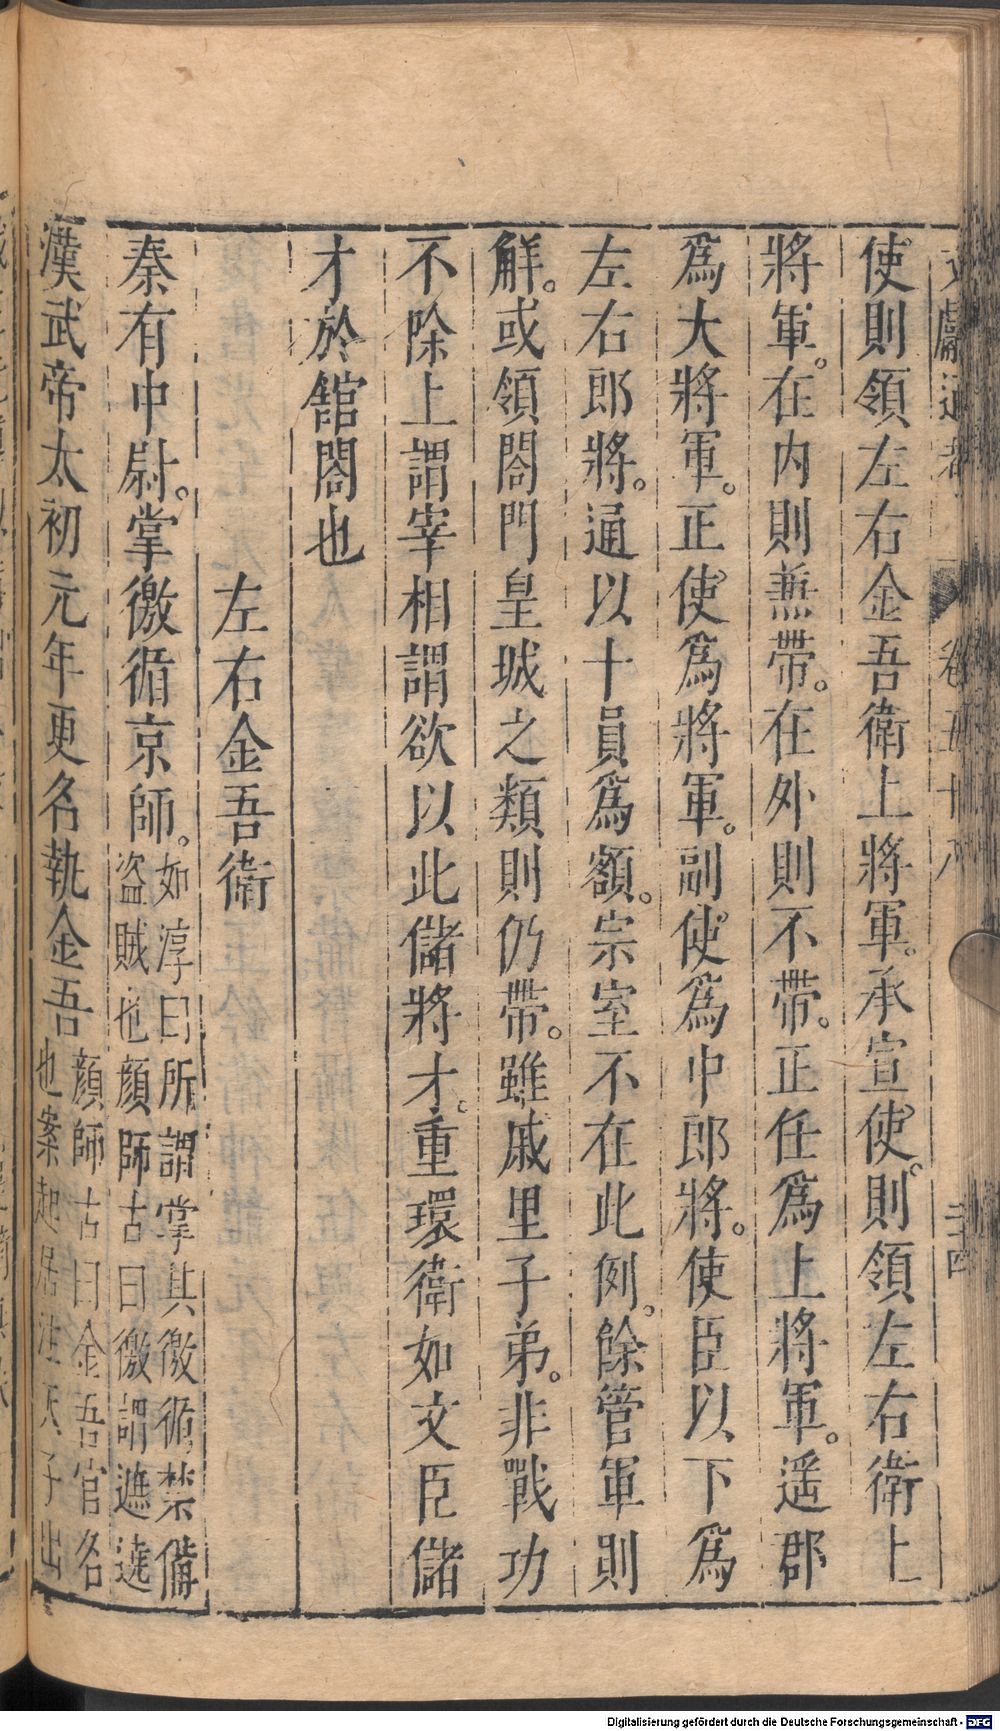 文獻通考 卷五十八 二十四
使則領左右金吾衛上將軍。承宣使。則領左右衛上
將軍。在内則兼帶。在外則不帶。正任爲上將軍。遥郡
爲大將軍。正使爲將軍。副使爲中郎將。使臣以下爲
左右郎將。通以十員爲額。宗室不在此例。餘管軍則
解。或領閤門皇城之類則仍帶。雖戚里子弟。非戰功
不除上謂宰相謂欲以此儲將才。重環衛如文臣儲
才於館閣也
左右金吾衛
秦有中尉。掌徼循京師。如淳曰所謂掌其徼循禁備
盗賊也顔師古曰徼謂遮遶
漢武帝太初元年更名執金吾顔師古曰金吾官名
也案起居注天子出
Digitalisierung gefördert durch die Deutsche Forschungsgemeinschaft - DFG